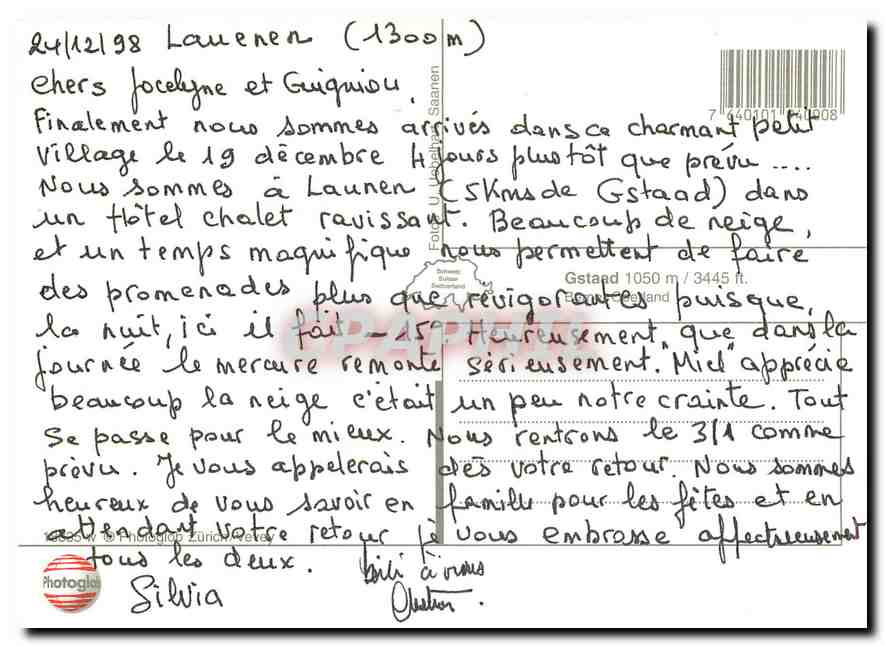 24/12/98 Lauenen (1300m)
chers Jocelyne et Guiguiou,
Finalement nous sommes arrivés dans ce charmant petit
village le 19 décembre 4 jours plustôt que prévu ....
Nous sommes à Launen (5Kms de Gstaad) dans
un Hôtel chalet ravissant. Beaucoup de neige,
et un temps magnifique nous permettent de faire
des promenades plus que révigorantes puisque,
la nuit, ici il fait -15° Heureusement, que dans la
journée le mercure remonte sérieusement. "Miel" apprécie
beaucoup la neige c'était un peu notre crainte. Tout
se passe pour le mieux. Nous rentrons le 3/1 comme
prévu. Je vous appelerais dès votre retour. Nous sommes
heureux de vous savoir en famille pour les fêtes et en
attendant votre retour je vous embrasse affectueusement
tous les deux.
Silvia
à vous
7 640101 340908
Foto: U. Uebelhart, Saanen
Schweiz
Suisse
Switzerland
Gstaad 1050 m / 3445 ft.
Berner Oberland
© Photoglob Zürich/Vevey
Photoglob
CPAPHIL